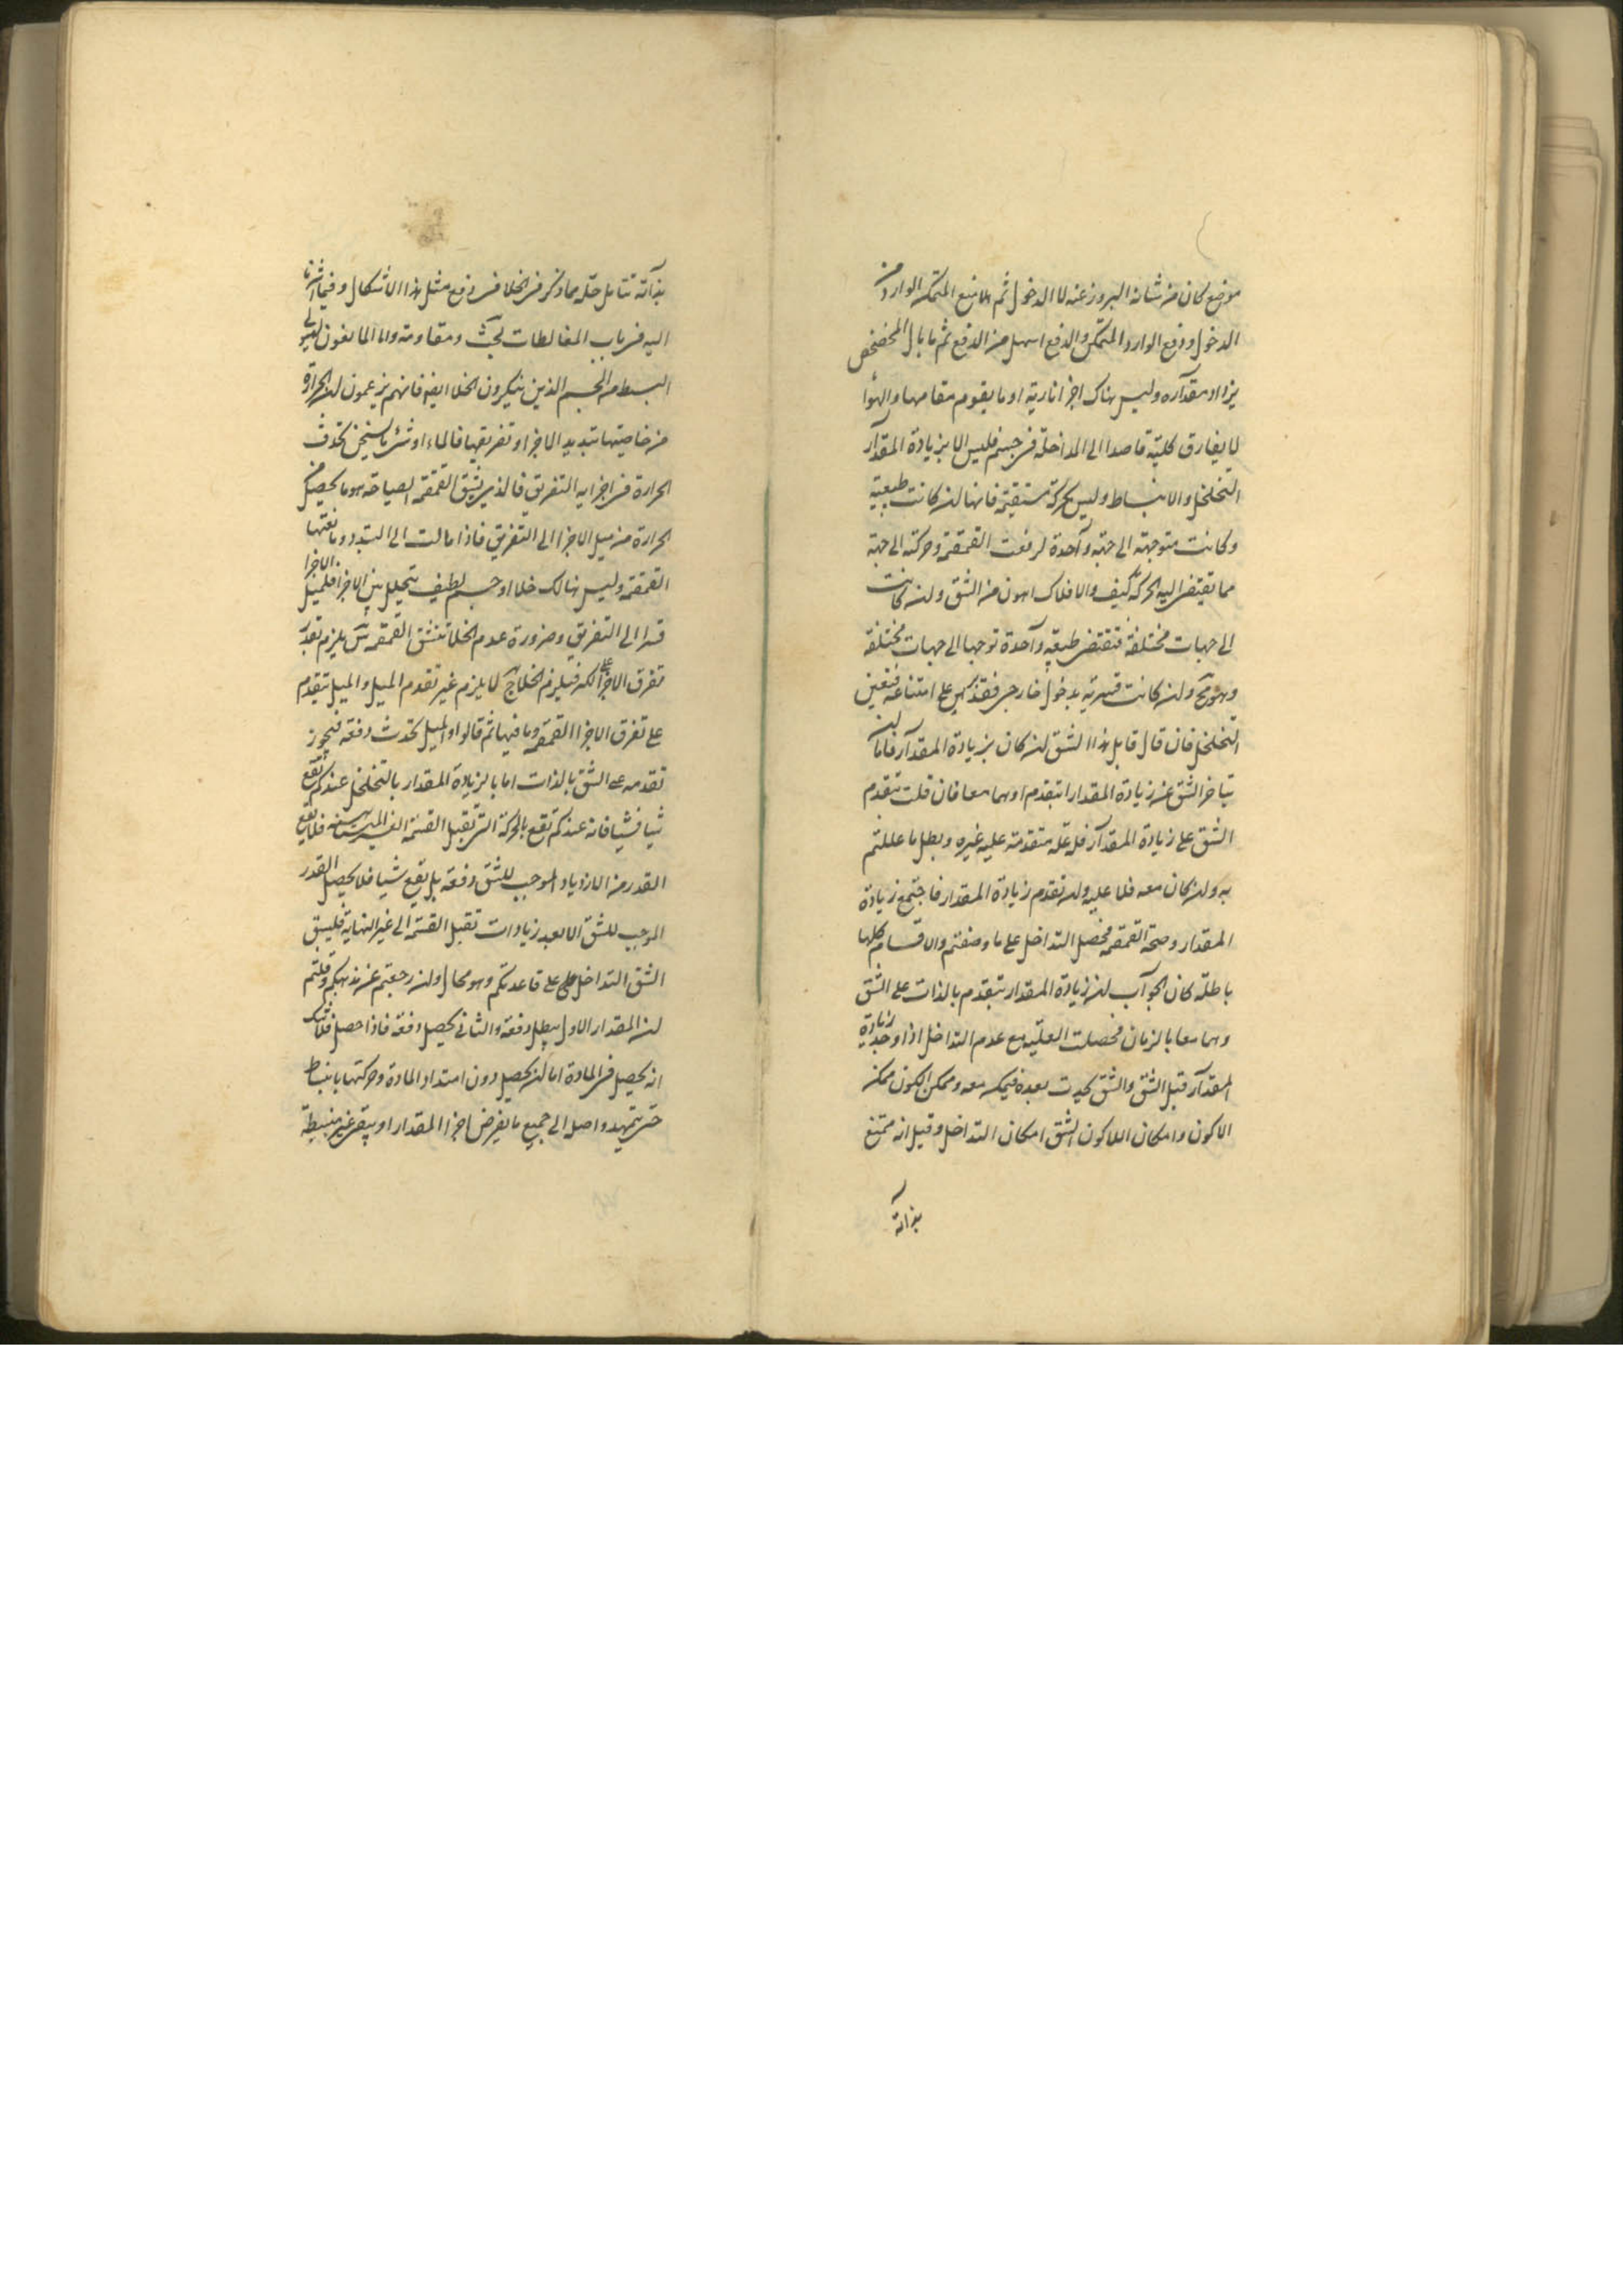 موضع كان من شانه البروز عنه لا الدخول ثم لا منع المتمكن الوارد من
الدخول ودفع الوارد المتمكن والدفع اسهل من الدفع ثم ما بال المخضخض
يزداد مقداره وليس هناك اجزا نارية او ما يقوم مقامها والهوا
لا يفارق كليته قاصدا الى المداخلة فى جسم فليس الا بزيادة المقدار
التخلخل والانبساط وليس بحركة مستقيمة فانها لن كانت طبيعية
وكانت متوجهة الى جهة واحدة لرفعت القمقمة وحركته الى جهة
مما تقتضى اليه الحركة كيف والافلاك اهون من الشق ولن كانت
الى جهات مختلفة فتقتضى طبيعة واحدة توجها الى جهات مختلفة
وهو مح ولن كانت قسرية بدخول خارجى فقد بين على امتناعه فتعين
التخلخل فان قال قايل هذا الشق لن كان بزيادة المقدار فاما لن
يتاخر الشق عن زيادة المقدار او يتقدم او هما معا فان قلت يتقدم
الشق على زيادة المقدار فله علة متقدمة عليه غيره وبطل ما عللتم
به ولن كان معه فلا علية ولن تقدم زيادة المقدار فاجتمع زيادة
المقدار وصحة القمقمة فحصل التداخل على ما وصفتم والاقسام كلها
باطلة كان الجواب لن زيادة المقدار يتقدم بالذات على الشق
وهما معا بالزمان فحصلت العلية مع عدم التداخل اذا وجد زيادة
المقدار قبل الشق والشق يحدث بعده فيمكن معه وممكن الكون ممكن
الاكون وامكان اللا كون الشق امكان التداخل وقيل انه ممتنع
بذاته
بذاته تتامل حله مما ذكر فى الخلا فى دفع مثل هذا الاشكال وفيما اشرنا
اليه فى باب المغالطات بحث ومقاومة واما المانعون لهيولى
البسط من الجسم الذين ينكرون الخلا ايض فانهم يزعمون لن الحرارة
من خاصيتها تبديد الاجزا وتفريقها فالماء او شئ ما يسخن تحدث
الحرارة فى اجزايه التفريق فالذى يشق القمقمة الصياحة هو ما يحصل من
الحرارة من ميل الاجزا الى التفريق فاذا مالت الى التبدد ومانعتها
القمقمة وليس هنالك خلا او جسم لطيف يتخلل بين الاجزا فلميل الاجزا
قسرا الى التفريق وضرورة عدم الخلا تنشق القمقمة بل يلزم تقدم
تفرق الاجزا لكن فيلزم الخلا بل لا يلزم غير تقدم الميل والميل يتقدم
على تفرق الاجزا القمقمة وما فيها ثم قالوا والميل تحدث دفعة فيجوز
تقدمه على الشق بالذات اما بالزيادة المقدار بالتخلخل عندكم تقع
شيا فشيا فانه عندكم تقع بالحركة التى تقبل القسمة الغير المتناهية فلا يقع
القدر من الازدياد الموجب للشق دفعة بل يقع شيا فلا يحصل القدر
الموجب للشق الا بعد زيادات تقبل القسمة الى غير النهاية فليسبق
الشق التداخل على قاعدتكم وهو محال ولن رجعتم عن مذهبكم وقلتم
لن المقدار الاول يبطل دفعة والثانى يحصل دفعة فاذا حصل فلا شك
انه يحصل فى المادة اما لن يحصل دون امتداد المادة وحركتها بانبساط
حتى تتمهد واصل الى جميع ما يفرض اجزا المقدار او يبقى غير منبسطة